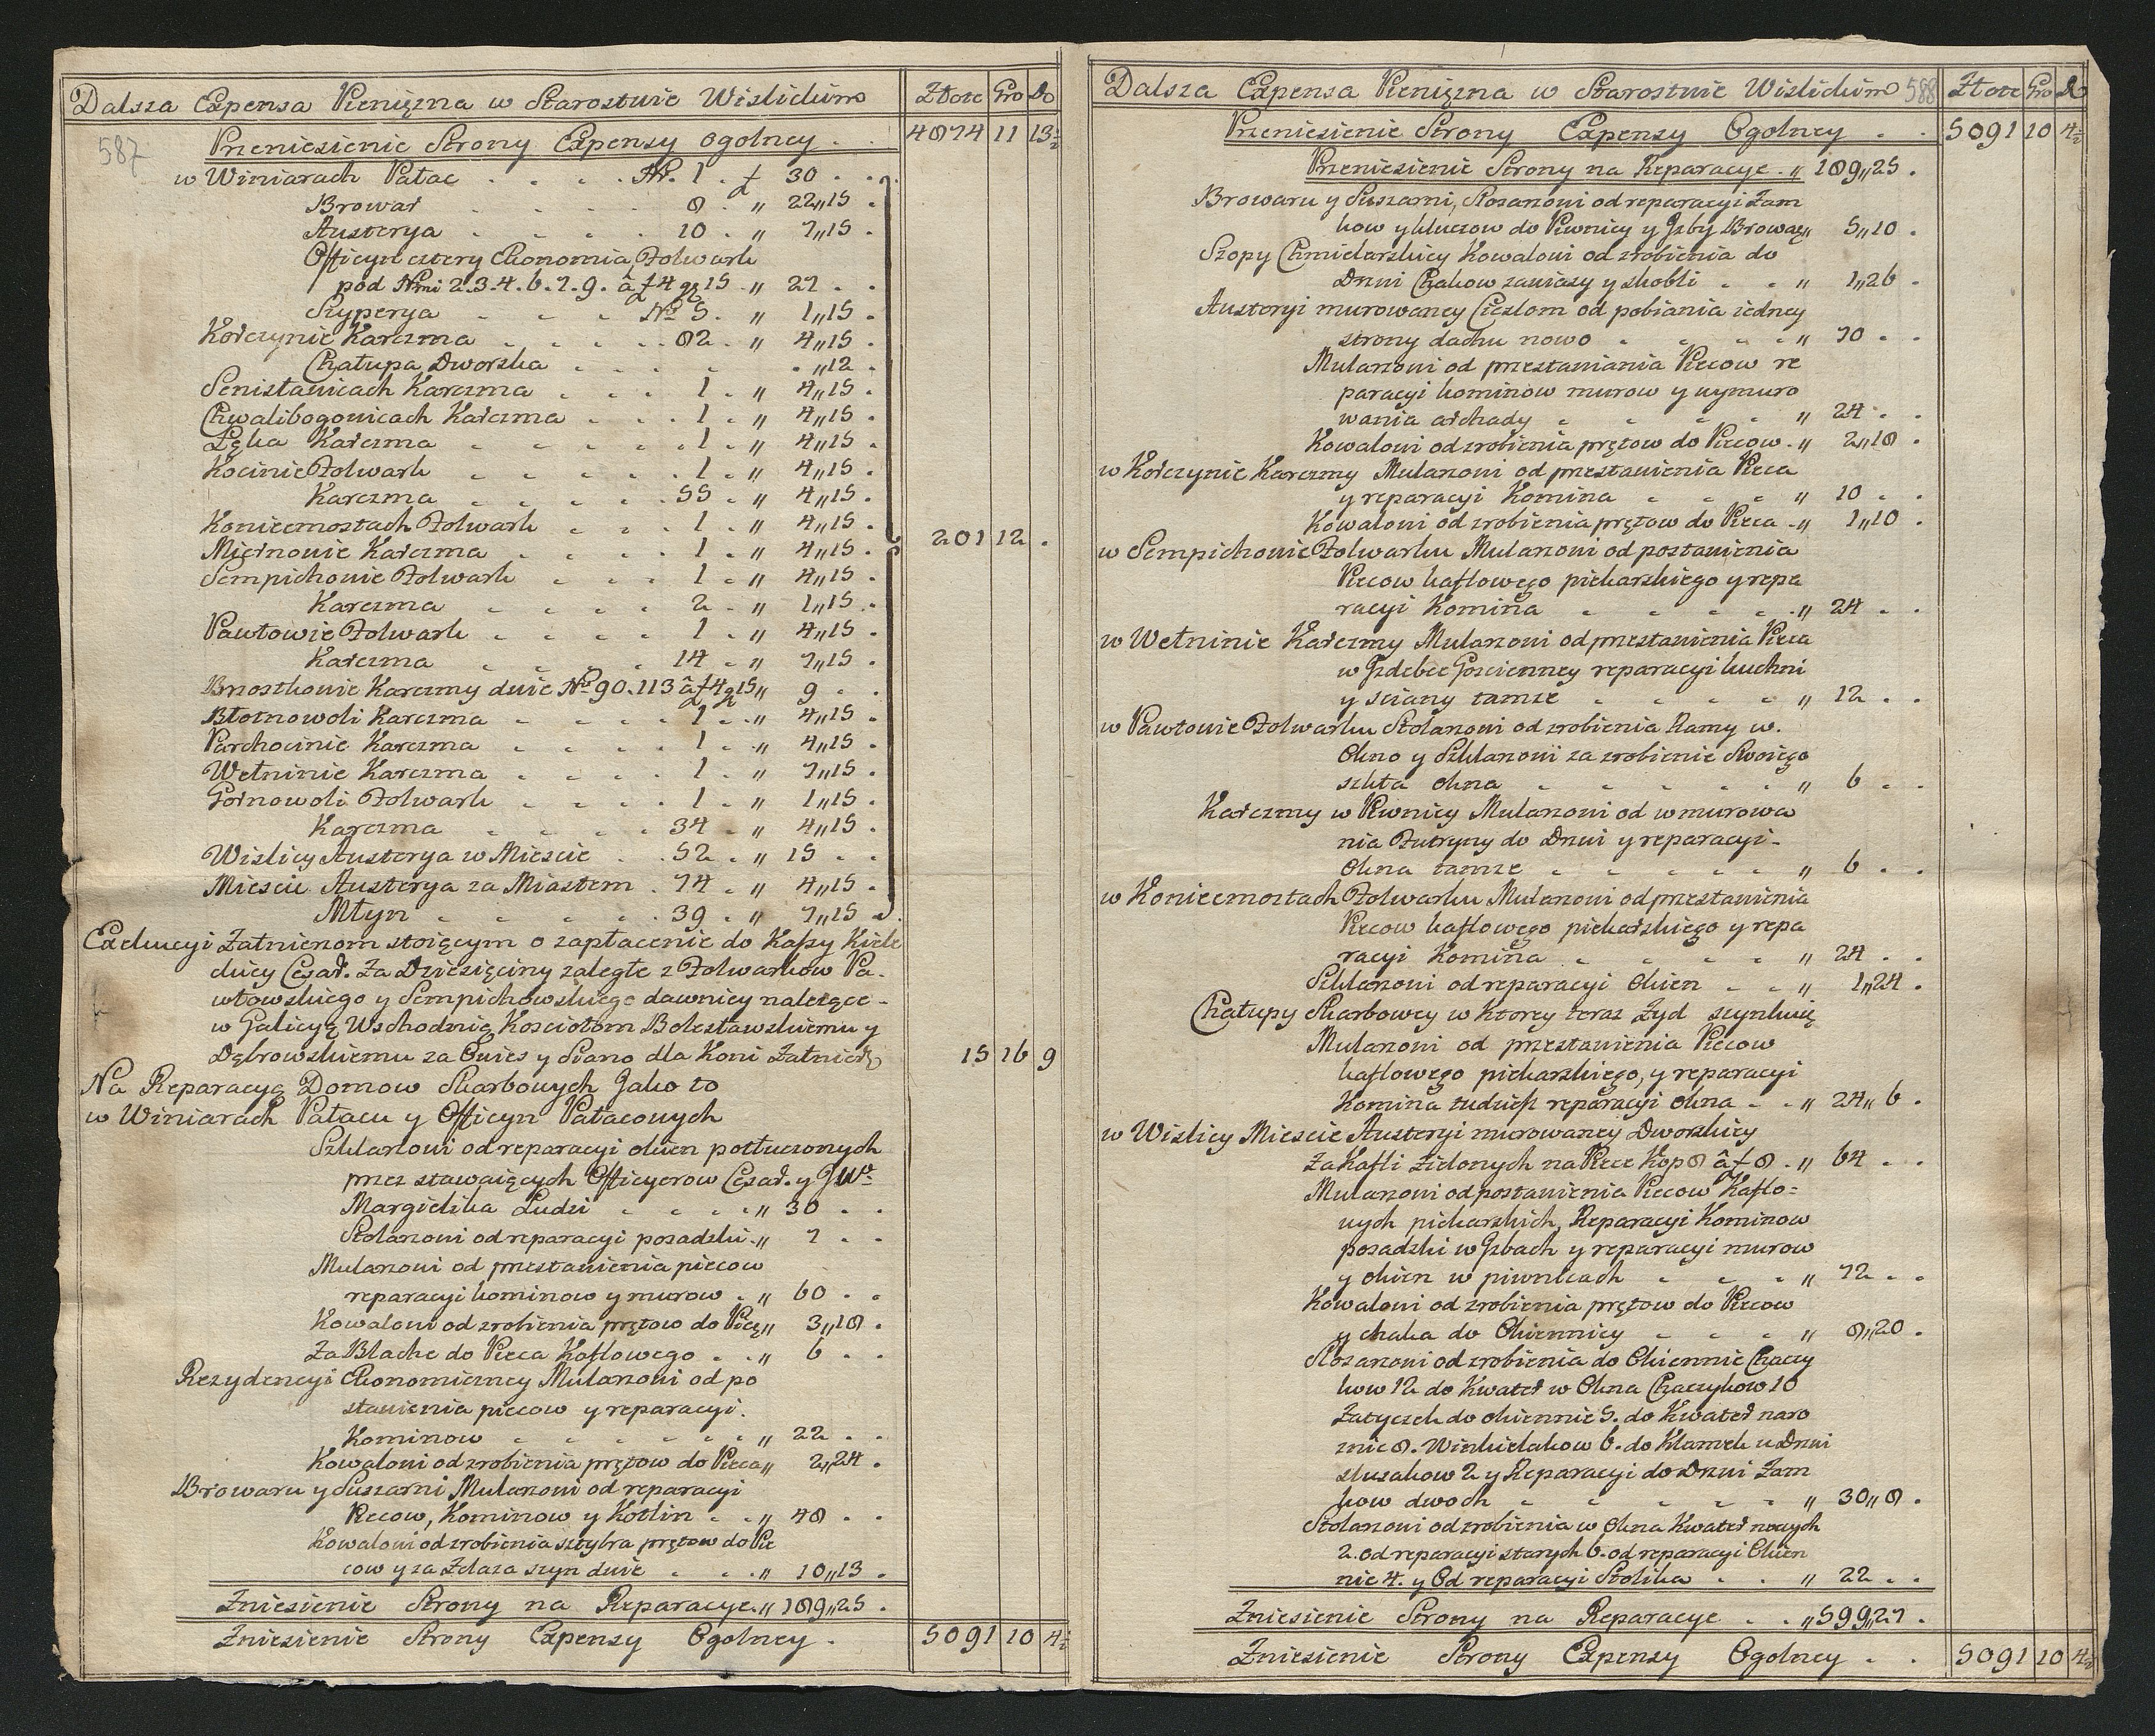 Dalsza Expensa Pieniężna w Starostwie Wislickim Złote Gro D
587
Przeniesienie Strony Expensy ogolney . . 4874 11 13½
w Winiarach Pałac . . . . Nr. 1 . f 30 . .
Browar . . . . 8 . „ 22„15 .
Austerya . . . . 10 . „ 7„15 .
Officyn cztery Ekonomia, Folwark
pod Nrmi 2.3.4.6.7.9. â f 4 gr 15 „ 27 . .
Szpyerya . . . No 5. „ 1„15 .
Korczynie Karczma . . . . . 82 . „ 4„15 .
Chałupa Dworska . . . . . „12 .
Senisławicach Karczma . . . 1 . „ 4„15 .
Chwalibogowicach Karczma . . . 1 . „ 4„15 .
Łęka Karczma . . . . . 1 . „ 4„15 .
Kocinie Folwark . . . . 1 . „ 4„15 .
Karczma . . . . . 55 . „ 4„15 .
Koniecmostach Folwark . . . 1 . „ 4„15 .
201 12 .
Miernowie Karczma . . . . 1 . „ 4„15 .
Sempichowie Folwark . . . 1 . „ 4„15 .
Karczma . . . . 2 . „ 1„15 .
Pawłowie Folwark . . . . 1 . „ 4„15 .
Karczma . . . . 14 . „ 7„15 .
Brzostkowie Karczmy dwie No 90.113 â f 4 g 15 „ 9 . .
Błotnowoli Karczma . . . . 1 . „ 4„15 .
Parchocinie Karczma . . . . 1 . „ 4„15 .
Wełninie Karczma . . . . 1 . „ 7„15 .
Gornowoli Folwark . . . . 1 . „ 1„15 .
Karczma . . . . 34 . „ 4„15 .
Wislicy Austerya w Miescie . . 52 . „ 15 . .
Miescie Austerya za Miastem . 74 . „ 4„15 .
Młyn . . . . . 39 . „ 7„15 .
Exekucyi Zołnierzom stoiącym o zapłacenie do Kaſsy Kiele
ckiey Cesar. Za Dziesięciny zaległe z Folwarkow Pa-
włowskiego y Sempichowskiego dawniey należące -
w Galicyę Wschodnią Kosciołom Bolesławskiemu y
Dąbrowskiemu za Owies y Siano dla Koni Zołnierzy 15 16 9
Na Reparacyą Domow Skarbowych Jako to
w Winiarach Pałacu y Officyn Pałacowych
Szklarzowi od reparacyi okien potłuczonych
przez stawaiących Officyerow Cesar. y JWo
Margielika Ludzi . . . . „ 30 . .
Stolarzowi od reparacyi posadzki . „ 7 . .
Mularzowi od przestawienia piecow
reparacyi kominow y murow . „ 60 . .
Kowalowi od zrobienia prętow do Piec „ 3„18 .
Za Blache do Pieca Kaflowego . . „ 6 . .
Rezydencyi Ekonomiczney Mularzowi od po
stawienia piecow y reparacyi.
Kominow . . . . . . „ 22 . .
Kowalowi od zrobienia prętow do Pieca „ 2„24 .
Browaru y Suszarni Mularzowi od reparacyi
Piecow, Kominow y Kotlin . . „ 48 . .
Kowalowi od zrobienia sztybra prętow do Pie
cow y za Zelaza szyn dwie . . . „ 10„13 .
Zniesienie Strony na Reparacye „ 189„25 .
Zniesienie Strony Expensy Ogolney . 5091 10 4½
Dalsza Expensa Pieniężna w Starostwie Wislickim 588 Złote Gro D
Przeniesienie Strony Expensy Ogolney . . 5091 10 4½
Przeniesienie Strony na Reparacye . „ 189„25 .
Browaru y Suszarni, Slosarzowi od reparacyi Zam
kow y kluczow do Piwnicy y Izby Browar „ 5„10 .
Szopy Chmielarskiey Kowalowi od zrobienia do
Drzwi Hakow zawiasy y skobli . . „ 1„26 .
Austeryi murowaney Cieslom od pobiania iedney
strony dachu nowo . . . . „ 70 . .
Mularzowi od przestawiania Piecow re
paracyi kominow murow y wymuro
wania arkady . . . . . „ 24 . .
Kowalowi od zrobienia prętow do Piecow . „ 2„18 .
w Korczynie Karczmy Mularzowi od przestawienia Pieca
y reparacyi Komina . . . . „ 10 . .
Kowalowi od zrobienia prętow do Pieca . „ 1„10 .
w Sempichowie Folwarku Mularzowi od postawienia
Piecow kaflowego piekarskiego y repa
racyi Komina . . . . . „ 24 . .
w Wełninie Karczmy Mularzowi od przestawienia Pieca
w Izdebce Gościnney reparacyi kuchni
y sciany tamze . . . . . „ 12 . .
w Pawłowie Folwarku Stolarzowi od zrobienia Ramy w.
Okno y Szklarzowi za zrobienie Swoiego
szkła okna . . . . . . „ 6 . .
Karczmy w Piwnicy Mularzowi od wmurowa
nia Futryny do Drzwi y reparacyi -
Okna tamze . . . . . „ 6 . .
w Koniecmostach Folwarku Mularzowi od przestawienia
Piecow kaflowego piekarskiego y repa
racyi Komina . . . . „ 24 . .
Szklarzowi od reparacyi Okien . . „ 1„24 .
Chałupy Skarbowey w Ktorey teraz Zyd szynkuię
Mularzowi od przestawienia Piecow
kaflowego piekarskiego, y reparacyi
Komina tudzieſz reparacyi okna . . „ 24„6 .
w Wislicy Miescie Austeryi murowaney Dworskiey
Za Kafli Zielonych na Piece Kop 8 â f 8 . „ 64 . .
Mularzowi od postawienia Piecow Kaflo=
wych piekarskich, Reparacyi Kominow
posadzki w Izbach y reparacyi murow
y okien w piwnicach . . . . „ 72 . .
Kowalowi od zrobienia prętow do Piecow
y haka do Okiennicy . . . . „ 8„20 .
Slosarzowi od zrobienia do Okiennic Haczy
kow 12 do Kwater w Okna Haczykow 10
Zatyczek do okiennic 5. do Kwater naro
znic 8. Winkielakow 6. do Klamek u Drzwi
sluzakow 2 y Reparacyi do Drzwi Zam
kow dwoch . . . . . „ 30„8 .
Stolarzowi od zrobienia w Okna Kwater nowych
2. od reparacyi starych 6. od reparacyi Okien
nic 4. y Od reparacyi Stolika . . „ 22 . .
Zniesienie Strony na Reparacye . . „ 599„27 .
Zniesienie Strony Expensy Ogolney . . 5091 10 4½